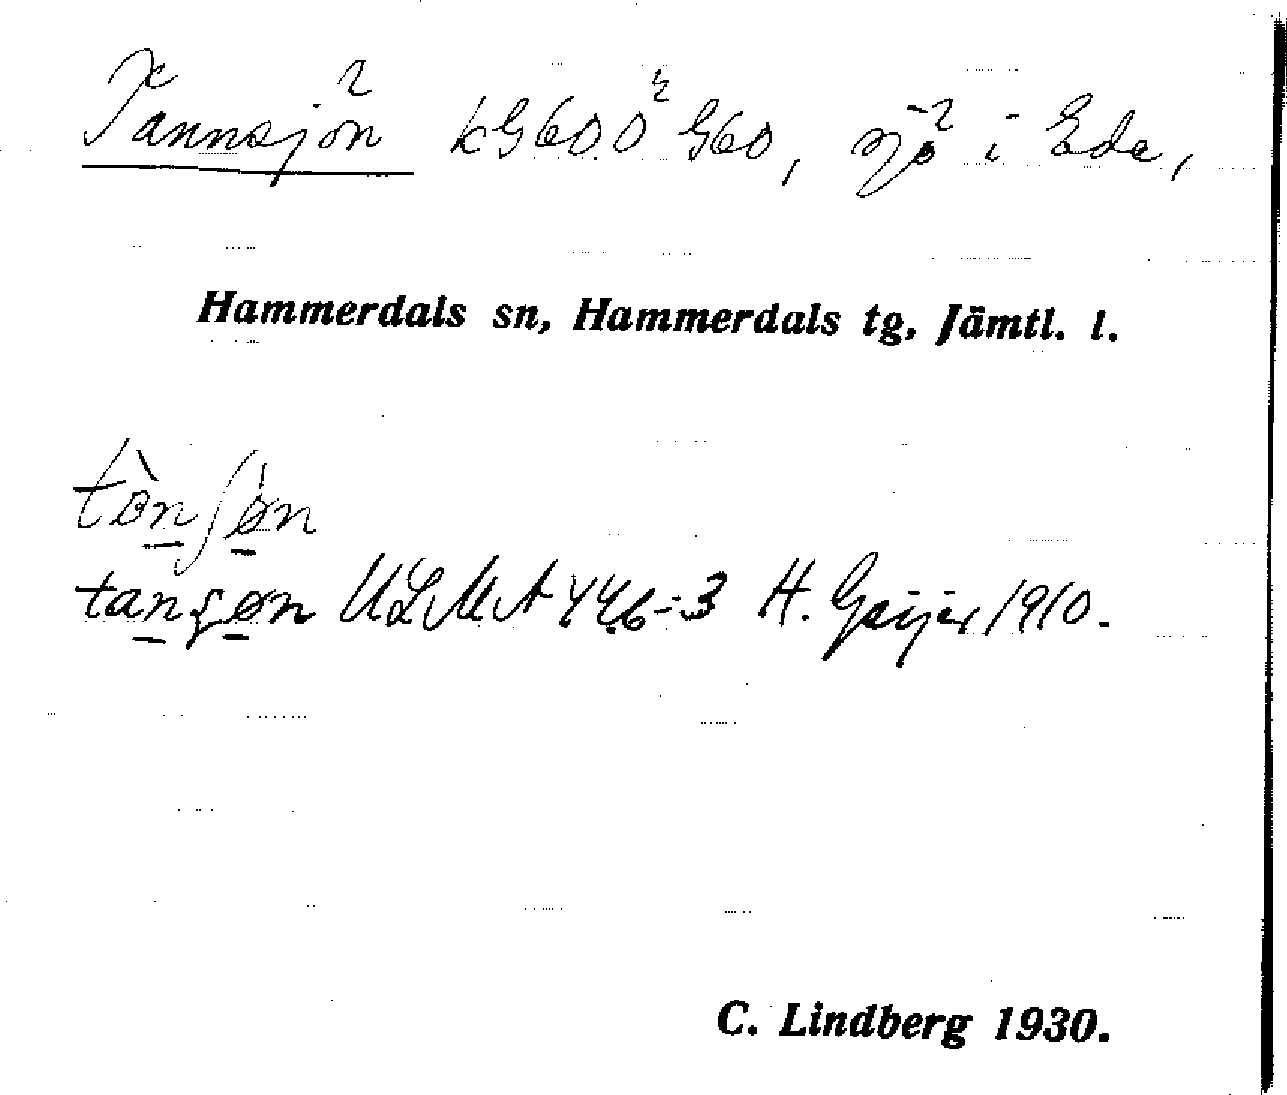 Tannsjön kG60.0 G60, sjö i Ede,
Hammerdals sn, Hammerdals tg, Jämtl. l.
ULMA 446:3 H. Geijer 1910.
C. Lindberg 1930.